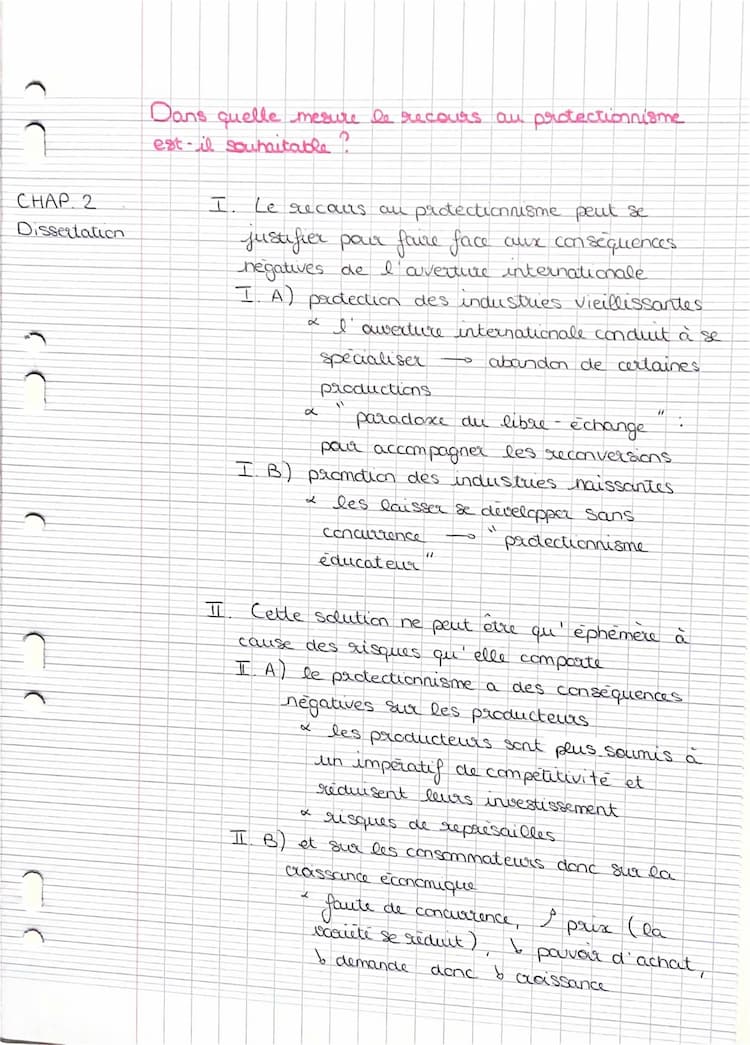 Dans quelle mesure le recours au protectionnisme
est-il souhaitable ?
CHAP. 2
Dissertation
I. Le recours au protectionnisme peut se
justifier pour faire face aux conséquences
négatives de l'ouverture internationale
I. A) protection des industries vieillissantes
∝ l'ouverture internationale conduit à se
spécialiser → abandon de certaines
productions
∝ "paradoxe du libre-échange" :
pour accompagner les reconversions
I. B) promotion des industries naissantes
∝ les laisser se développer sans
concurrence → "protectionnisme
éducateur"
II. Cette solution ne peut être qu'éphémère à
cause des risques qu'elle comporte
II. A) le protectionnisme a des conséquences
négatives sur les producteurs
∝ les producteurs sont plus soumis à
un impératif de compétitivité et
réduisent leurs investissement
∝ risques de représailles
II. B) et sur les consommateurs donc sur la
croissance économique
∝ faute de concurrence, ↗ prix (la
se réduit), ↘ pouvoir d'achat,
↘ demande donc ↘ croissance